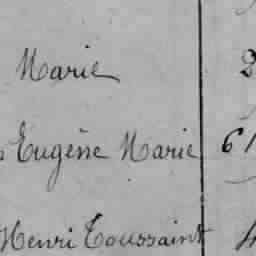 Marie 2
Eugène Marie 61
Henri Toussaint 4